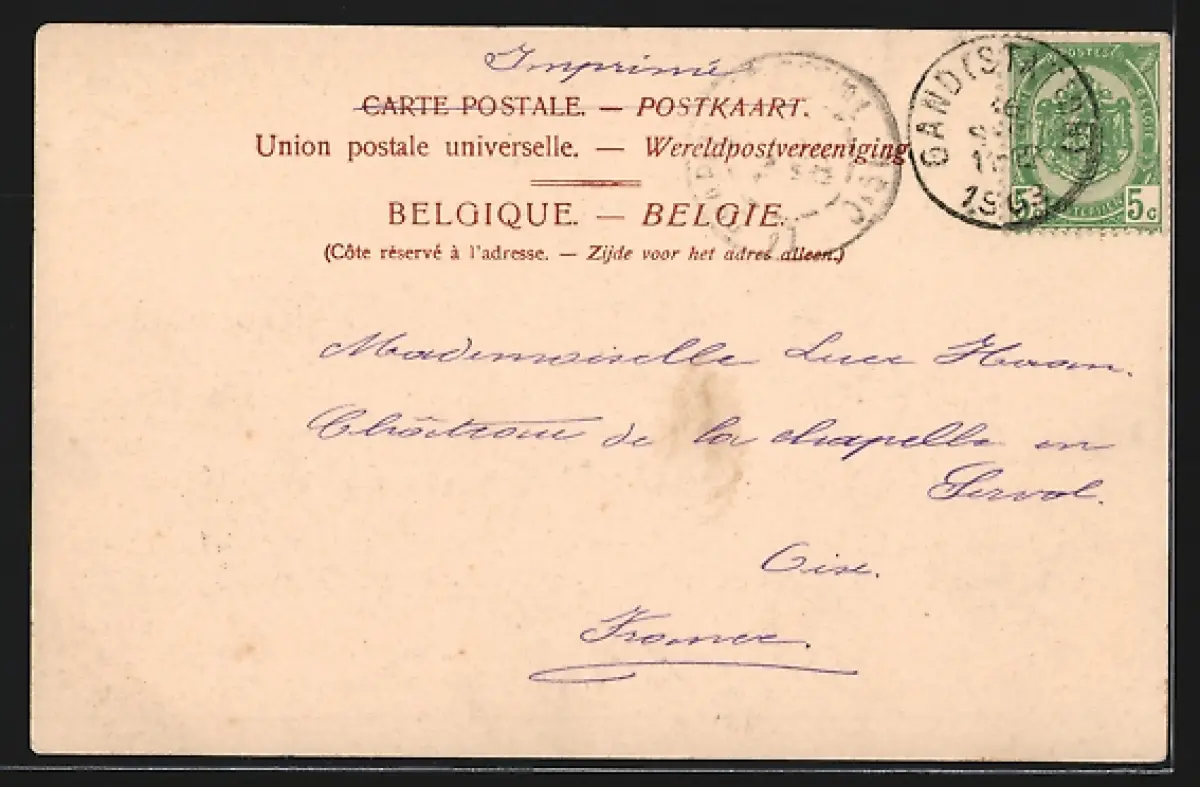 Imprimé
CARTE POSTALE. — POSTKAART.
Union postale universelle. — Wereldpostvereeniging
BELGIQUE. — BELGIE.
(Côte réservé à l'adresse. — Zijde voor het adres alleen.)
GAND (ST
1903
POSTES
5 5 c
Mademoiselle Luce Haan.
Château de la chapelle en
Serval.
Oise.
France.